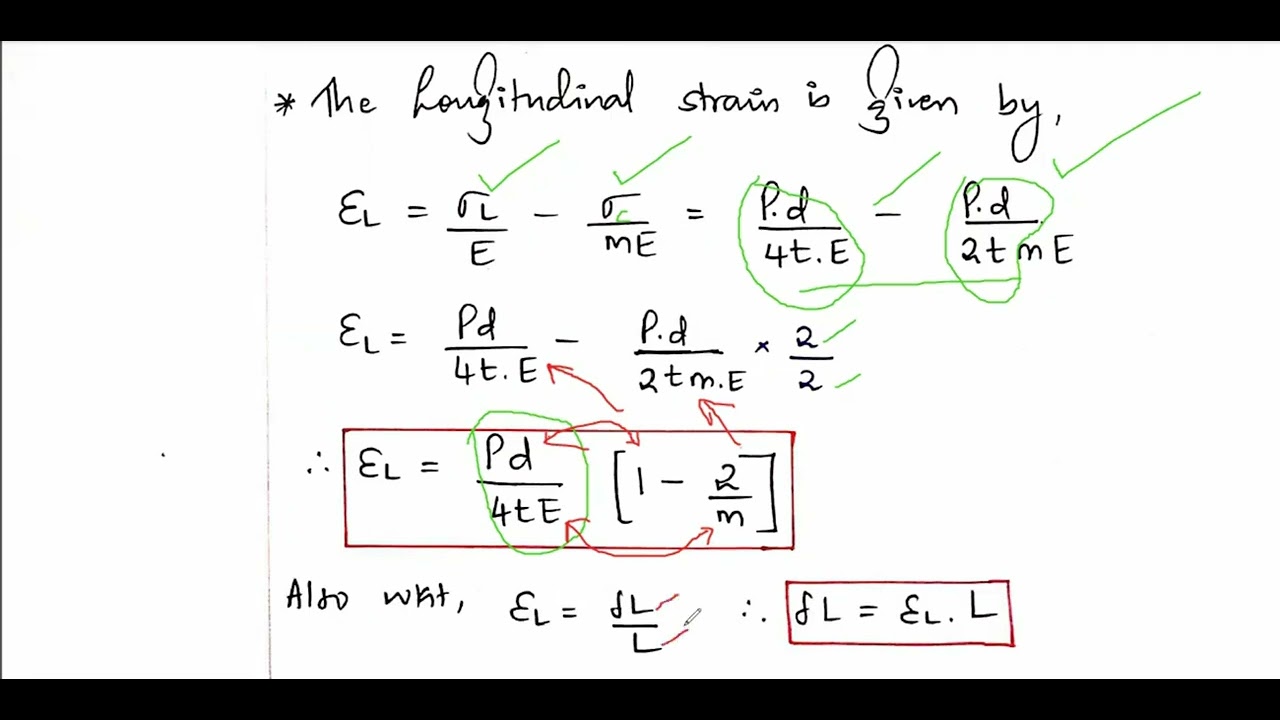 * The Longitudinal strain is given by,
εL = σL/E − σc/mE = P.d/4t.E − P.d/2tmE
εL = Pd/4t.E − P.d/2tm.E × 2/2
∴ εL = Pd/4tE [1 − 2/m]
Also wkt, εL = δL/L ∴ δL = εL. L